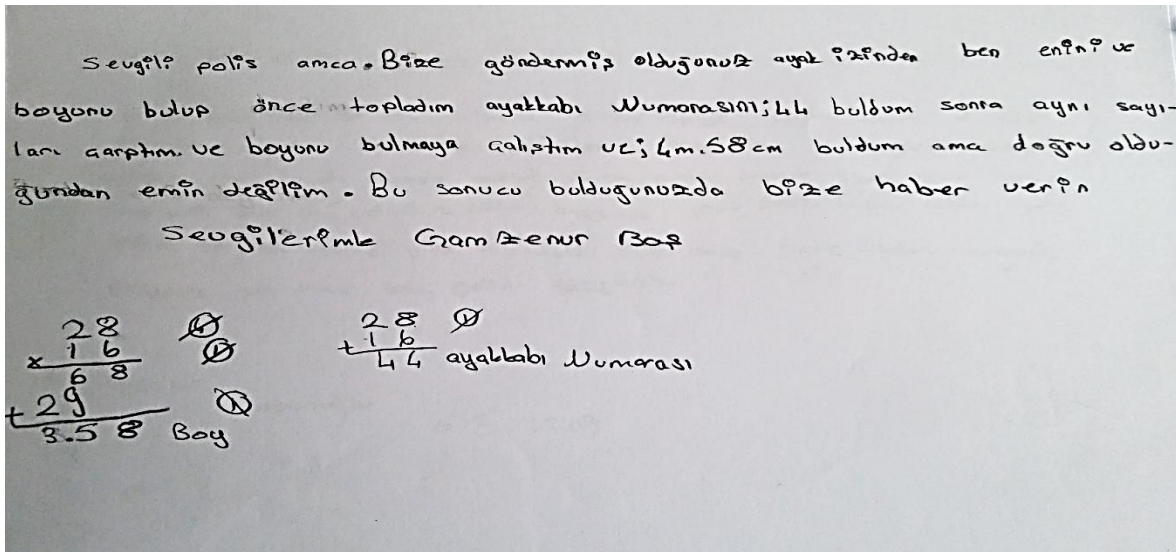 Sevgili polis amca. Bize göndermiş olduğunuz ayak izinden ben enini ve
boyunu bulup önce topladım ayakkabı Numorasını; 44 buldum sonra aynı sayı-
ları çarptım. ve boyunu bulmaya çalıştım ve; 4m.58cm buldum ama doğru oldu-
ğundan emin değilim. Bu sonucu bulduğunuzda bize haber verin
Sevgilerimle Gamzenur Baş
28
x 16
68
+ 29
3.58 Boy
28
+ 16
44 ayakkabı Numarası